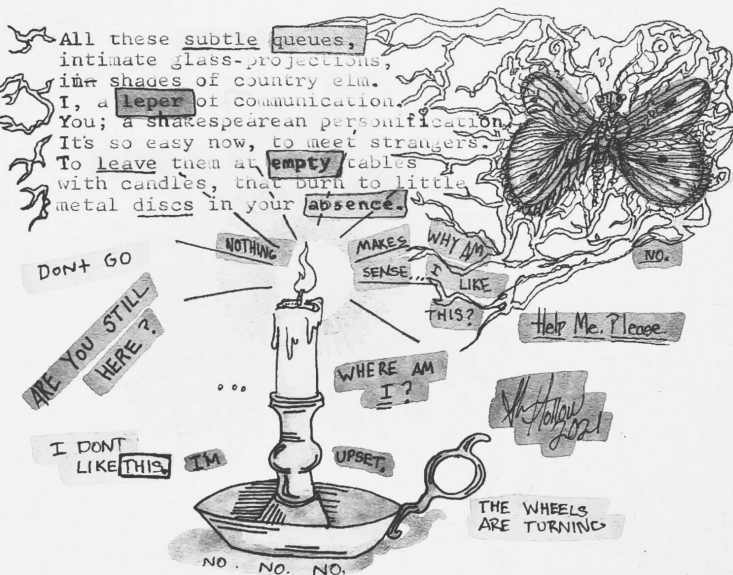 All these subtle queues,
intimate glass-projections,
in shades of country elm.
I, a leper of communication.
You; a shakespearean personification.
It's so easy now, to meet strangers.
To leave them at empty tables
with candles, that burn to little
metal discs in your absence.
NOTHING MAKES
SENSE...
WHY AM
I LIKE
THIS?
NO.
DONT GO
ARE YOU STILL
HERE?
Help Me. Please
...
WHERE AM
I?
Hollow
2021
I DONT
LIKE THIS.
I'M UPSET.
THE WHEELS
ARE TURNING
NO. NO. NO.